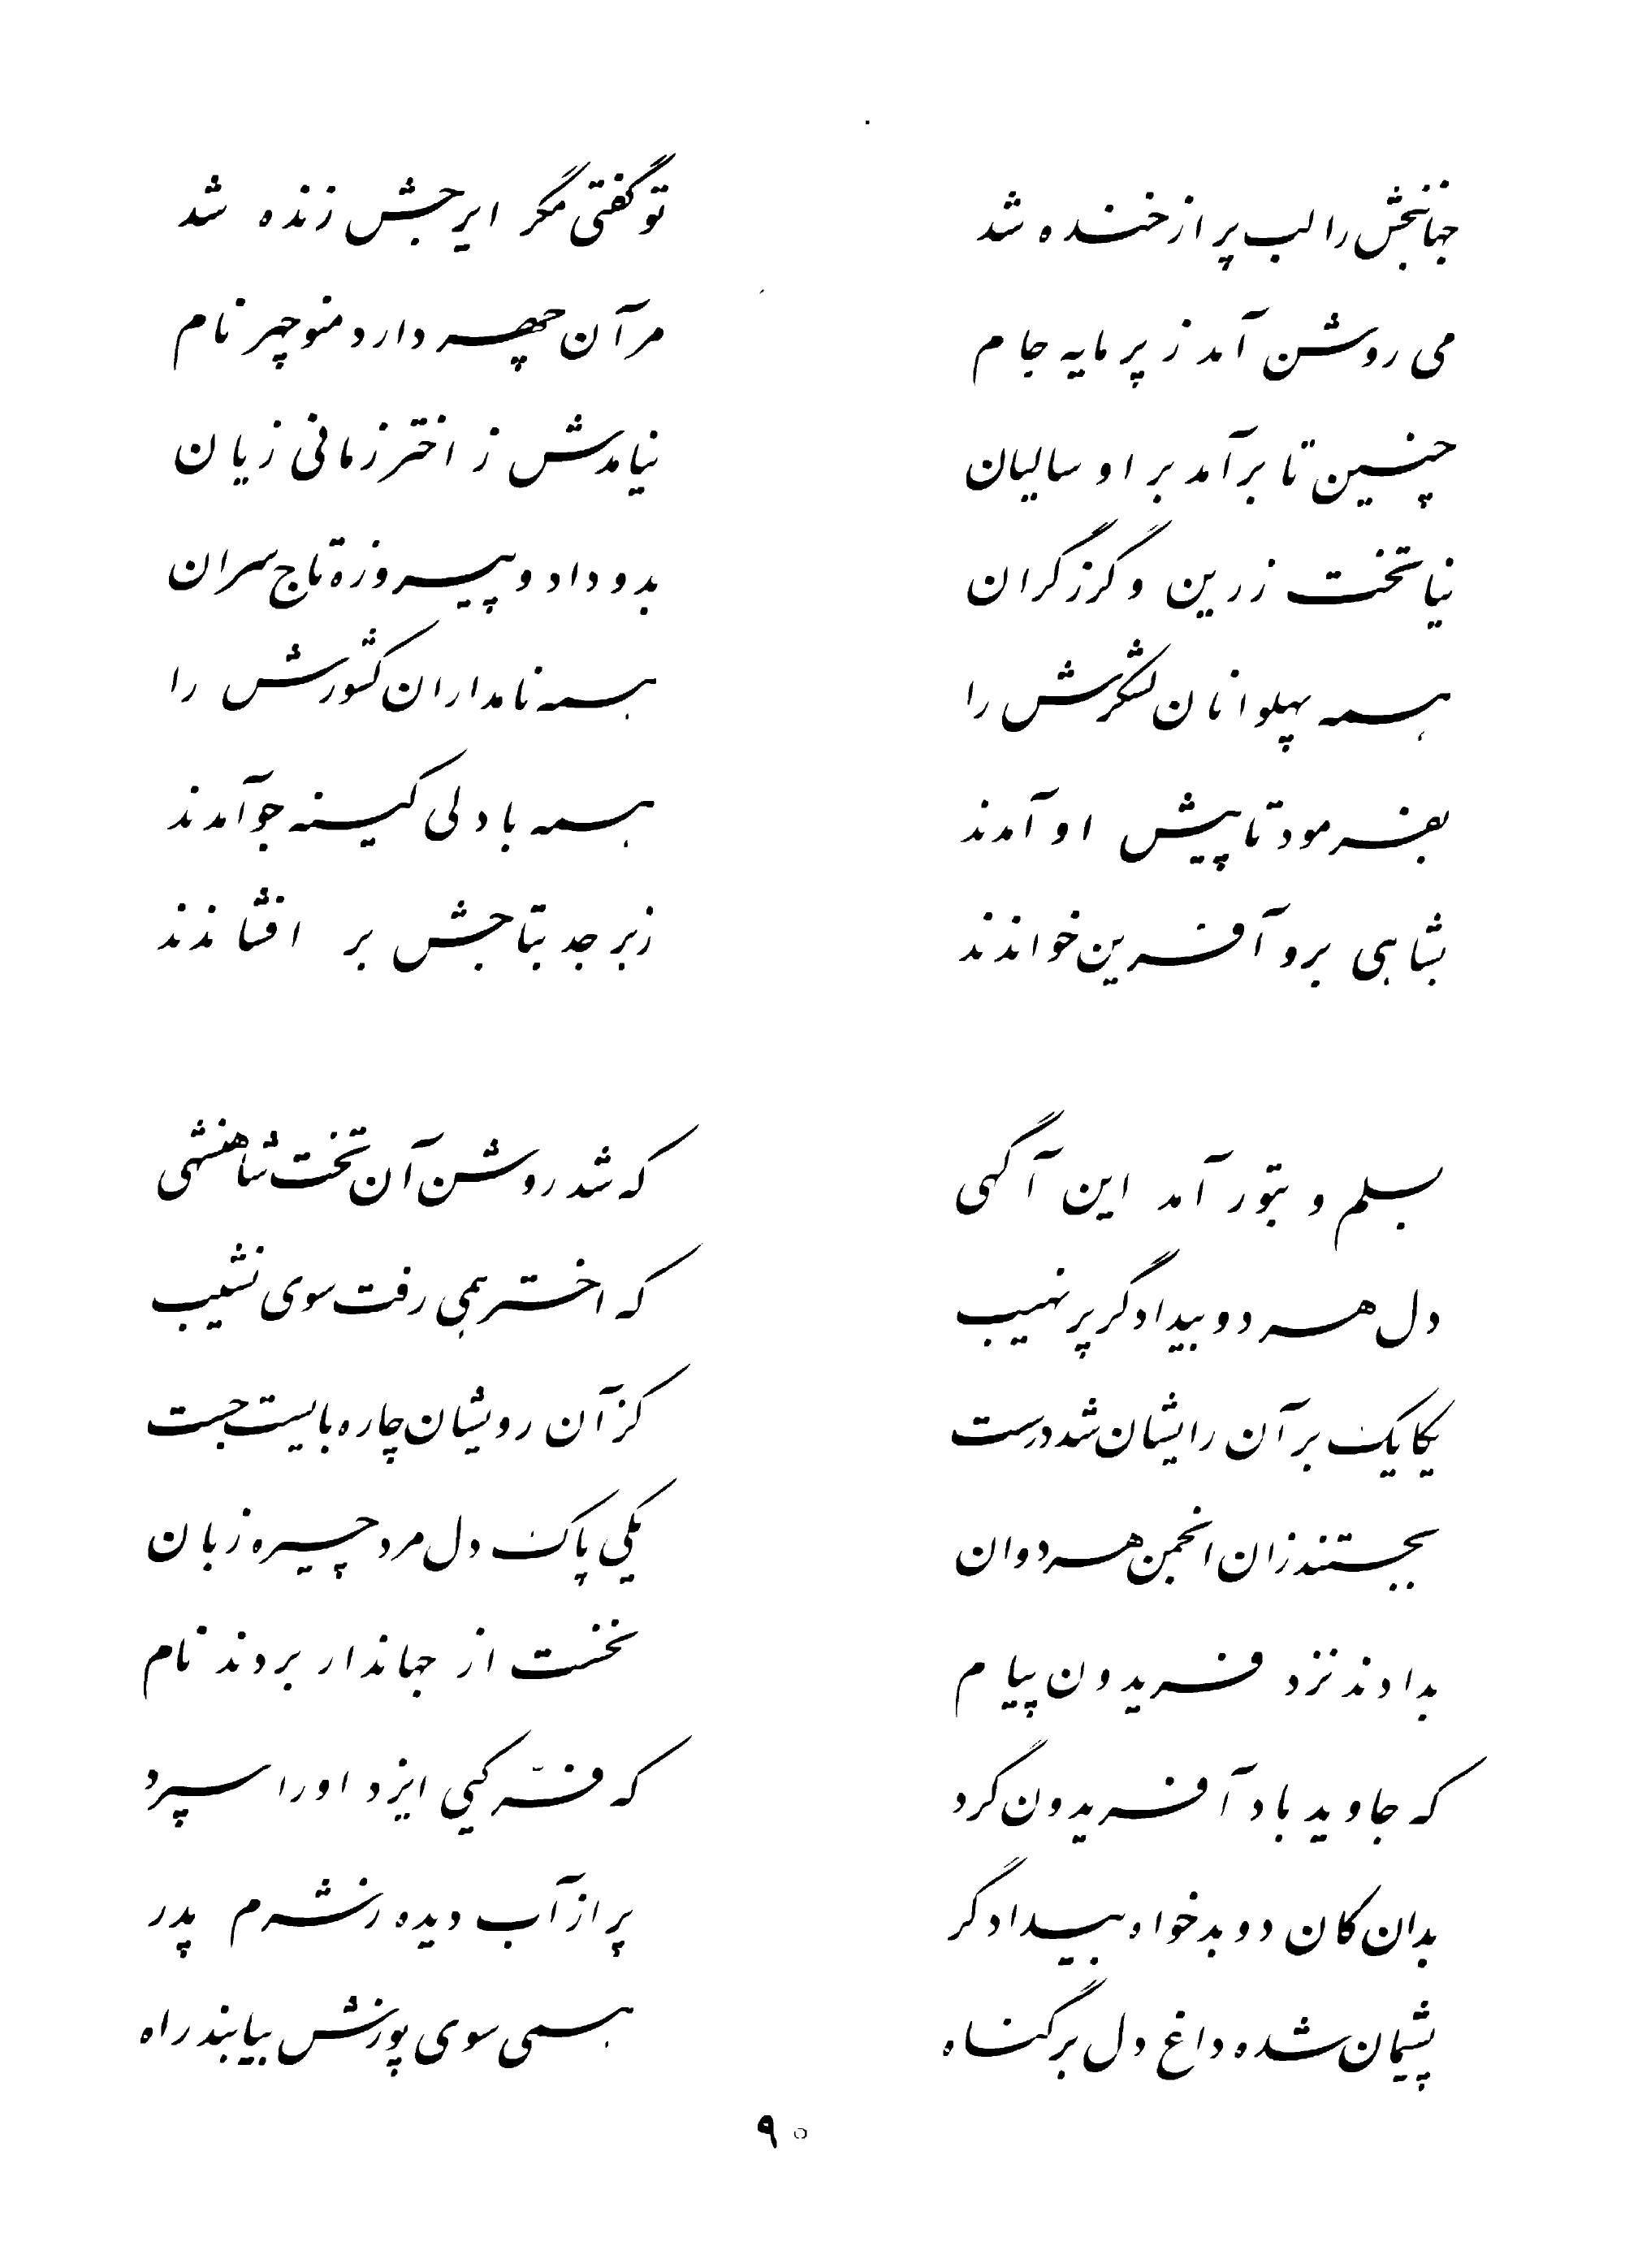 جهانبخش را لب پر از خنده شد
تو گفتی مگر ایرجش زنده شد
می روشن آمد ز پر مایه جام
مر آن چهر دارد منوچهر نام
چنین تا برآمد بر او سالیان
نیامدش ز اختر زمانی زیان
نیا تخت زرین و گرز گران
بدو داد و پیروزه تاج سران
همه پهلوانان لشکرش را
همه نامداران کشورش را
بفرمود تا پیش او آمدند
همه با دلی کینه جو آمدند
بشاهی برو آفرین خواندند
زبرجد بتاجش بر افشاندند
بسلم و بتور آمد این آگهی
که شد روشن آن تخت شاهنشهی
دل هر دو بیدادگر پر نهیب
که اختر همی رفت سوی نشیب
یکایک بر آن رایشان شد درست
کز آن رویشان چاره بایست جست
بجستند زان انجمن هردوان
یکی پاک دل مرد چیره زبان
بدادند نزد فریدون پیام
نخست از جهاندار بردند نام
که جاوید باد آفریدون گرد
که فرّ کیی ایزد او را سپرد
بدان کان دو بدخواه بیدادگر
پر از آب دیده ز شرم پدر
پشیمان شده داغ دل بر گناه
همی سوی پوزش بیابند راه
۹۰